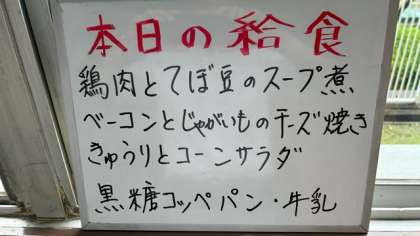 本日の給食
鶏肉とてぼ豆のスープ煮
ベーコンとじゃがいものチーズ焼き
きゅうりとコーンサラダ
黒糖コッペパン・牛乳